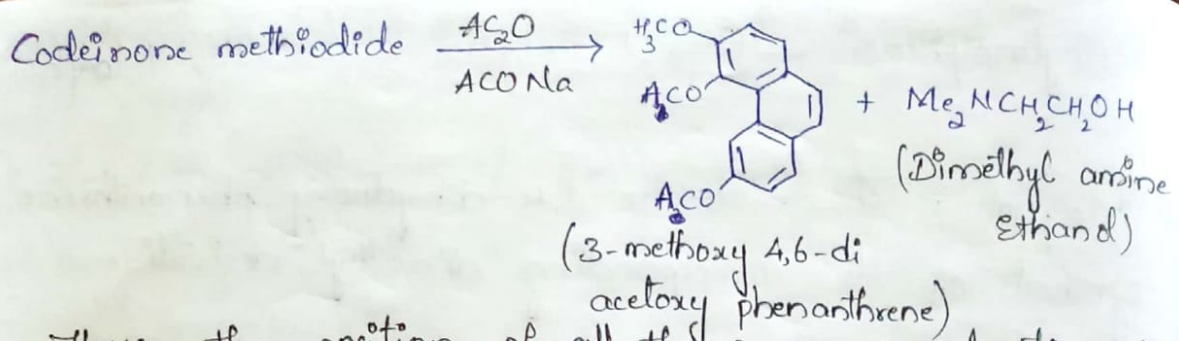 Codeinone methiodide
AC2O
ACONa
H3CO
ACO
+ Me2NCH2CH2OH
ACO
(Dimethyl amine
Ethanol)
(3-methoxy 4,6-di
acetoxy phenanthrene)